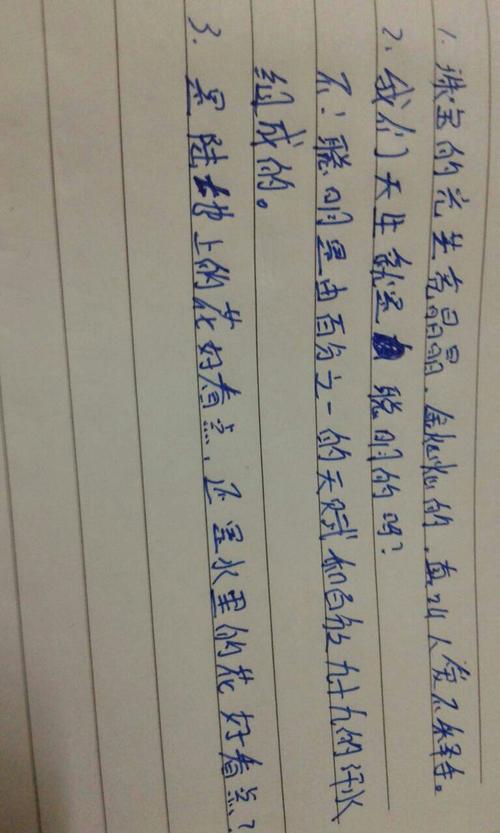 1. 珠宝的光生亮晶晶、金灿灿的,直叫人爱不释手。
2. 我们天生就是聪明的吗?
不!聪明是由百分之一的天赋和百分九十九的汗水
组成的。
3. 是陆地上的花好看点,还是水里的花好看点?